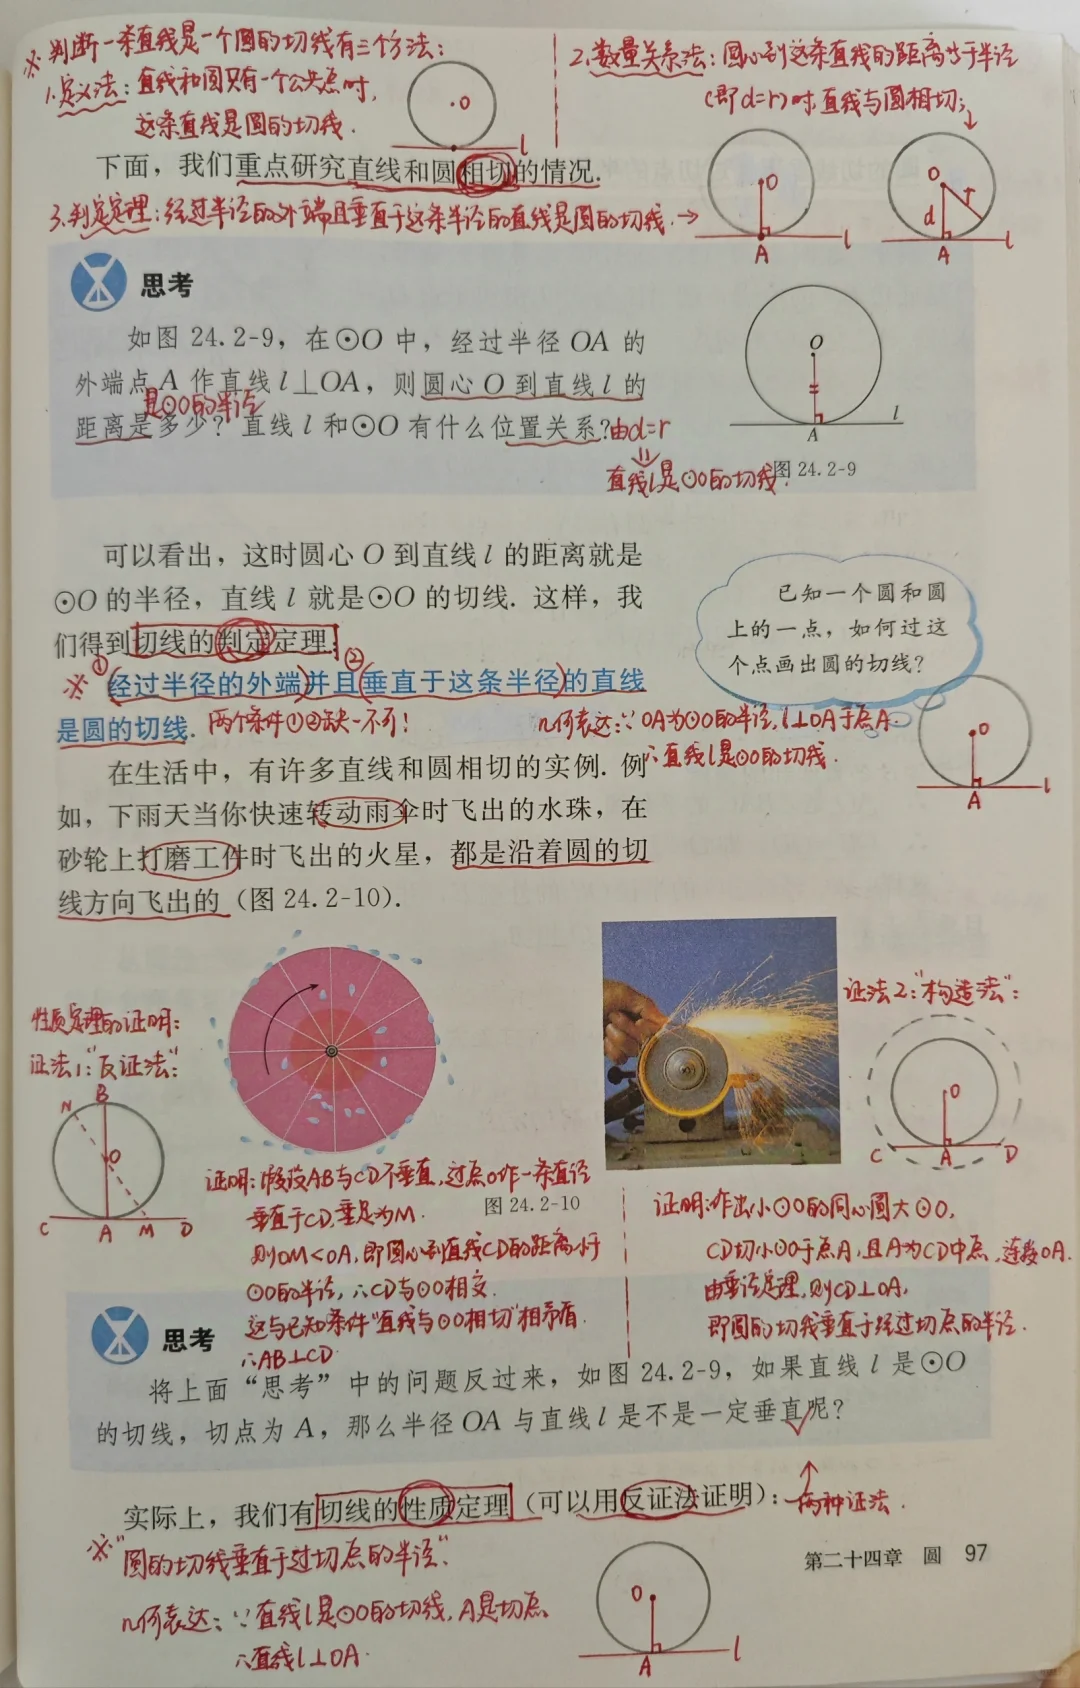 ※判断一条直线是一个圆的切线有三个方法:
1.定义法:直线和圆只有一个公共点时,
这条直线是圆的切线.
·O
l
2.数量关系法:圆心到这条直线的距离等于半径
(即d=r)时,直线与圆相切;
下面，我们重点研究直线和圆相切的情况.
3.判定定理:经过半径的外端且垂直于这条半径的直线是圆的切线.→
O
A
l
O
r
d
A
l
思考
如图 24.2-9，在⊙O 中，经过半径 OA 的
外端点 A 作直线 l⊥OA，则圆心 O 到直线 l 的
是⊙O的半径
距离是多少？直线 l 和⊙O 有什么位置关系？
由d=r
⇓
直线l是⊙O的切线.
O
A
l
图 24.2-9
可以看出，这时圆心 O 到直线 l 的距离就是
⊙O 的半径，直线 l 就是⊙O 的切线. 这样，我
们得到切线的判定定理：
※ ① ②
经过半径的外端并且垂直于这条半径的直线
是圆的切线.
两个条件①②缺一不可!
已知一个圆和圆
上的一点，如何过这
个点画出圆的切线？
几何表达:∵OA为⊙O的半径,l⊥OA于点A.
∴直线l是⊙O的切线.
O
A
l
在生活中，有许多直线和圆相切的实例. 例
如，下雨天当你快速转动雨伞时飞出的水珠，在
砂轮上打磨工件时飞出的火星，都是沿着圆的切
线方向飞出的（图 24.2-10）.
性质定理的证明:
证法1:"反证法":
N
B
O
C
A
M
D
证法2:"构造法":
O
C
A
D
图 24.2-10
证明:假设AB与CD不垂直,过点O作一条直径
垂直于CD,垂足为M.
则OM<OA,即圆心到直线CD的距离小于
⊙O的半径,∴CD与⊙O相交.
这与已知条件"直线与⊙O相切"相矛盾.
∴AB⊥CD.
证明:作出小⊙O的同心圆大⊙O,
CD切小⊙O于点A,且A为CD中点,连接OA.
由垂径定理,则CD⊥OA,
即圆的切线垂直于经过切点的半径.
思考
将上面“思考”中的问题反过来，如图 24.2-9，如果直线 l 是⊙O
的切线，切点为 A，那么半径 OA 与直线 l 是不是一定垂直呢？
实际上，我们有切线的性质定理（可以用反证法证明）：
两种证法.
※"圆的切线垂直于过切点的半径".
第二十四章 圆 97
几何表达:∵直线l是⊙O的切线,A是切点,
∴直线l⊥OA.
O
A
l